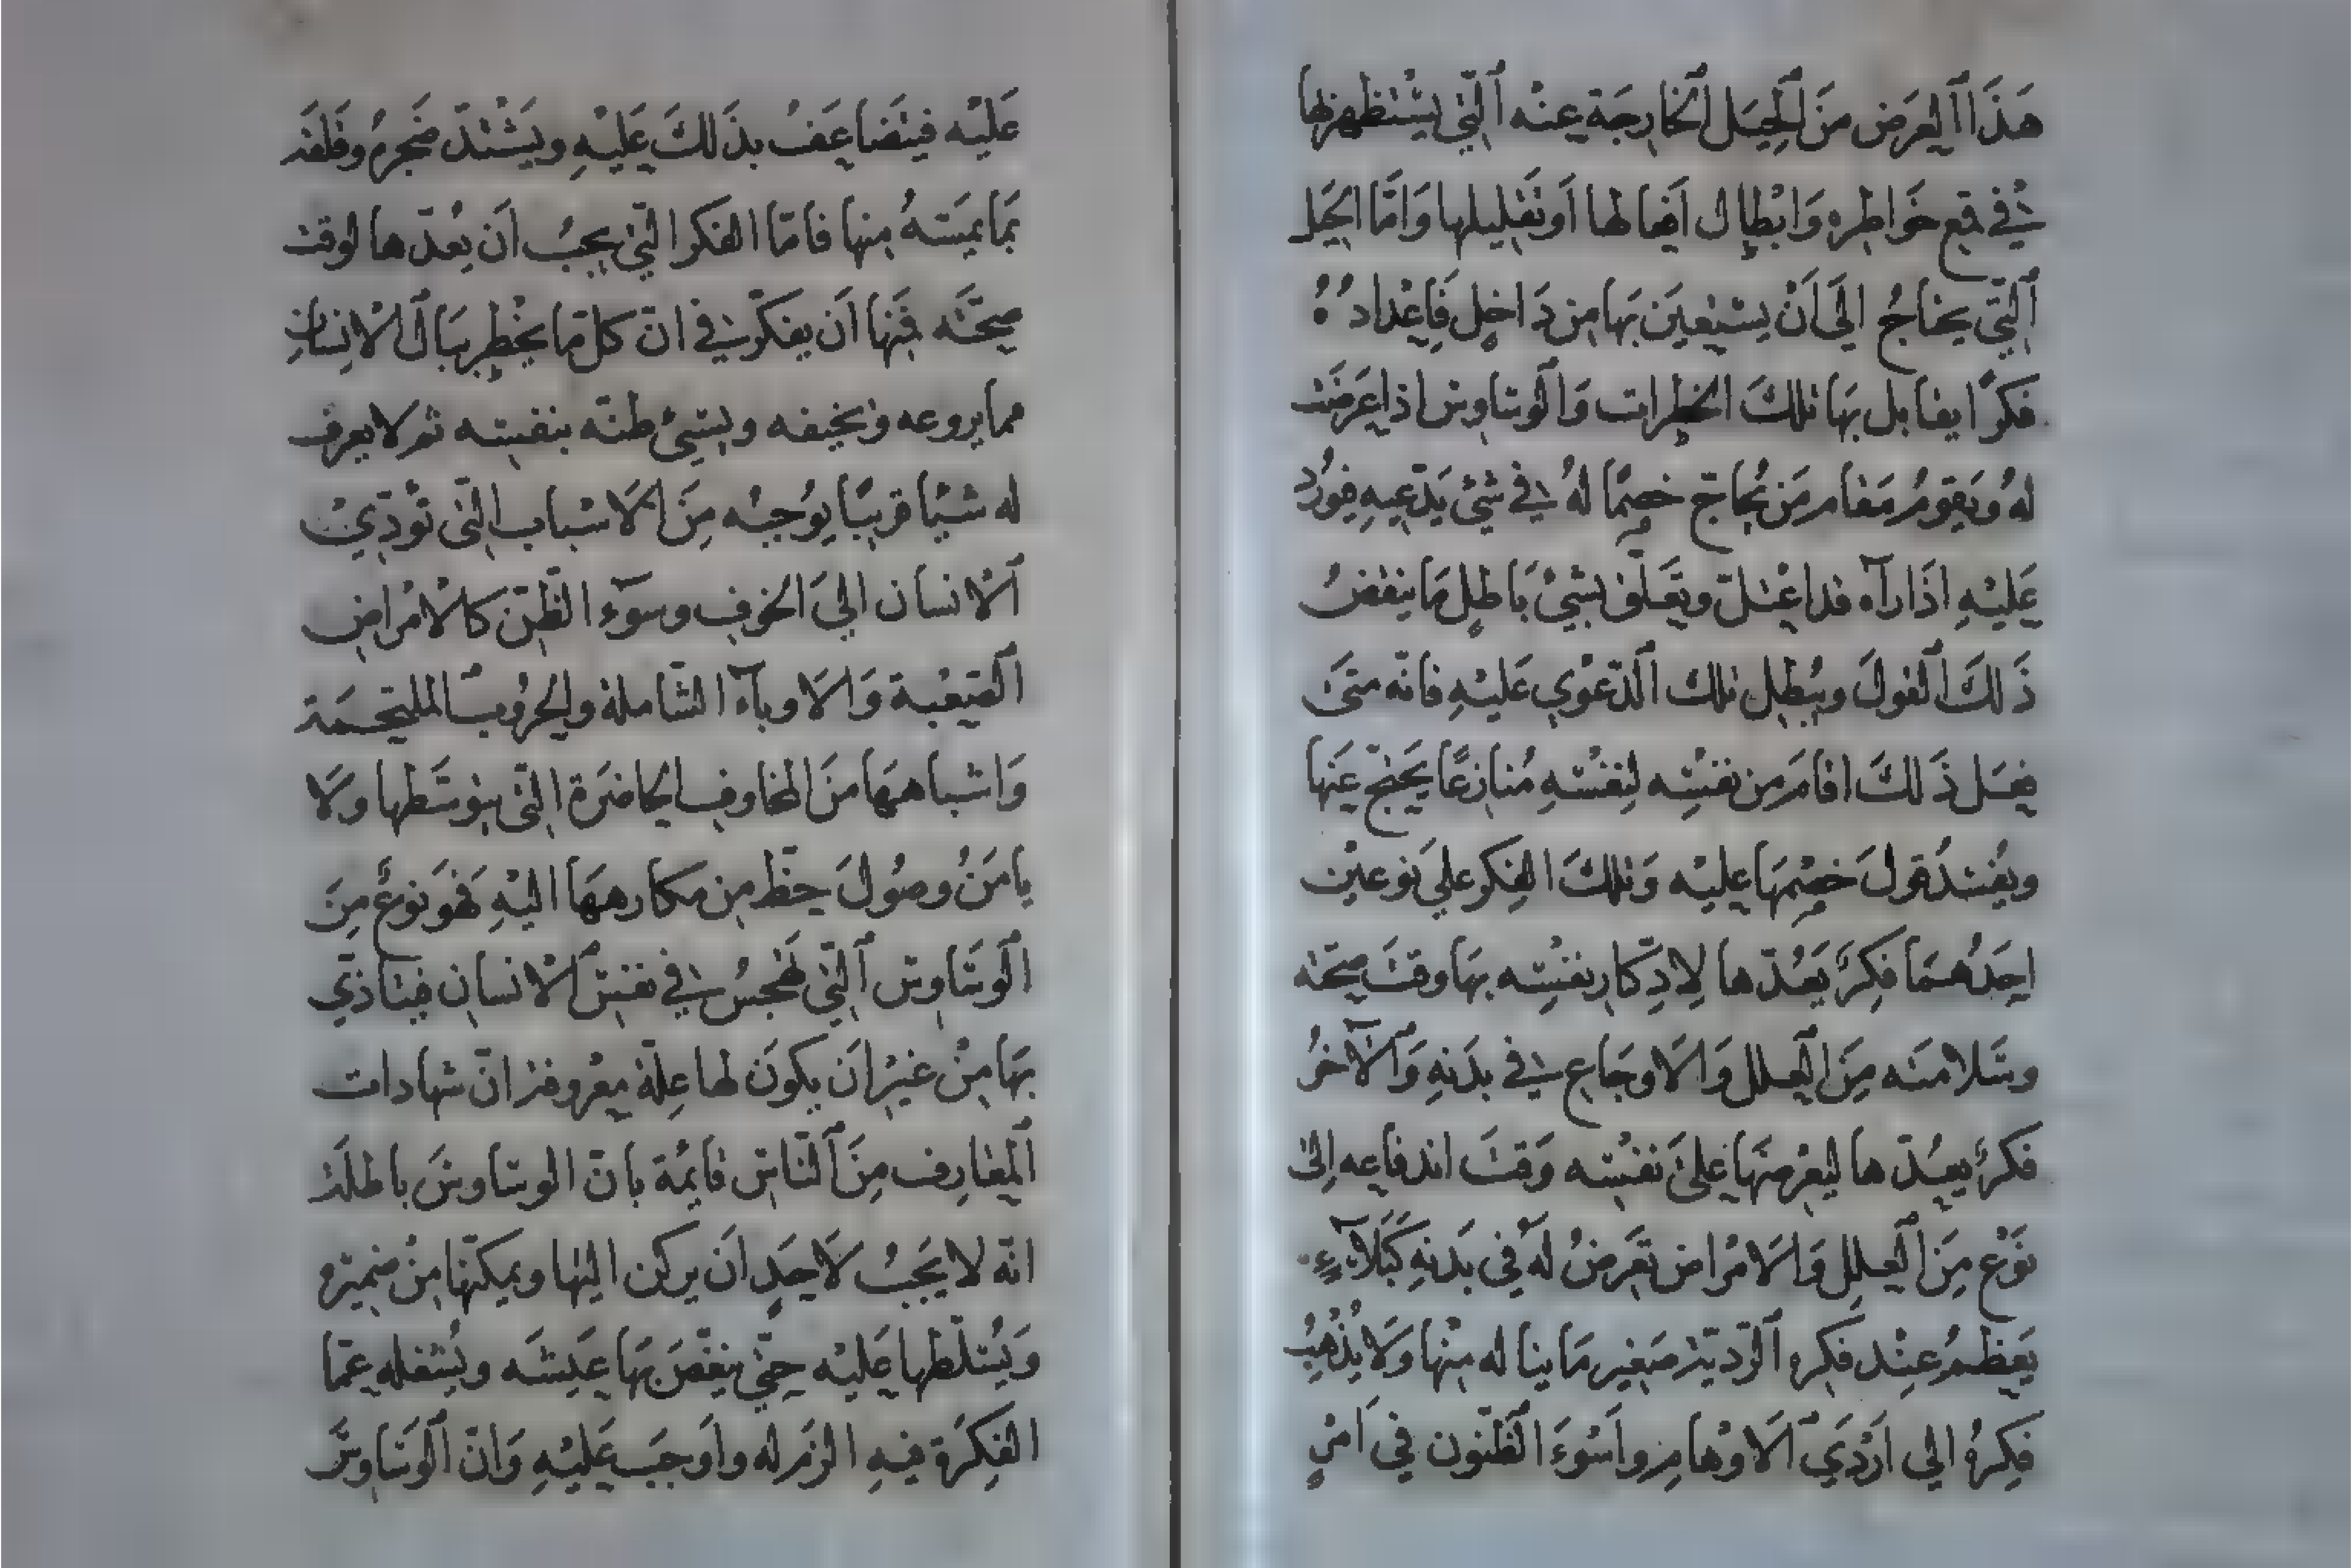 هَذَا اَلعَرَض مِنَ اَلْحِيَل اَلخارِجَة عنْه اَلتّي يسْتظهر بها
في قمع خَواطِره وَابْطال اَفعالها اَو تَقليلها وَامّا الحِيَل
اَلتّي يحتاجُ الَى اَنْ يسْتعينَ بهَا من دَاخل فَاعْدادُهُ
فكرًا يقابل بهَا تلكَ الخطرات وَاَلوسَاوس اذا عَرضَت
لهُ ويَقومُ مَقام مَن يُحاجّ خصمًا لهُ في شيْ يَدّعيهِ فيورُد
عَليْهِ اذَا رآه قد اعْتلّ وتعَلّق بشيْ بَاطل مَا ينقضُ
ذَلكَ اَلقولَ ويبْطل تلك اَلدّعْوي عَليْهِ فانّه متَى
فعَل ذَلكَ اقامَ من نفسِه لنفسْهِ مُنازعًا يَحتجّ عَنها
ويفَنّدُ قولَ خصْمهَا عليْه وَتلكَ الفِكر علي نوعيْن
احَدُهمَا فِكرٌ يَعُدّها لاِدّكارِ نفسْه بهَا وقتَ صحّته
وسَلامته مِنَ اَلعلل وَاَلاوجَاع في بدَنهِ وَاَلآخرُ
فكرٌ يعِدّها ليعْرضهَا عَلىَ نفسْه وَقتَ اندفاعه اِلىَ
نوْع مِنَ اَلعِلل وَالاَمْراض تعَرضُ لهَ في بَدنهِ كَبَلآءٍ
يَعظمُ عِنْد فكرِه اَلرّديّة صَغير مَا يناله منْها وَلا يُذْهبُ
فِكرهُ الي ارْدَي اَلاَوْهام واَسْوءَ اَلظّنون في اَمْرٍ
عَليْه فيتَضاعَفُ بذَلكَ عَليْهِ ويَشْتدّ ضجَرهُ وقلقه
بمَا يمَسّهُ منها فامّا الفكر التّي يجبُ اَن يعُدّها لوقت
صحّته فمَنها اَن يفكّر في انّ كلّ مّا يخْطر ببَال اَلاْنسان
مما يروعه ويخيفه ويسيْ ظنّه بنفسه ثم لا يعرف
له شيْا قريبًا يوُجبْه مِنَ اَلاسْباب التّى تؤدّيْ
اَلاْنسان الىَ الخوف وسوَء الظّنّ كالاْمْراض
اَلصّعْبة وَالاَوبآء الشّاملة والحرُوب الملتحمَة
وَاشباههَا منَ المخاوف الحاضرَة التّى يتوسّطها ولَا
يامَنُ وصُولَ حظّ من مكارههَا اليْهِ فهَو نوعٌ مِنَ
اَلوسَاوس اَلتّي تَهجسُ في نفس اَلاْنسان فيتاذّي
بهَا منْ غيْر اَن يكونَ لها عِلّة معْروفة انّ شهادات
اَلمعَارِف مِنَ اَلنّاس قايمُة بانّ الوسَاوسَ باطلَة
انّه لا يَجبُ لاَحَدٍ اَن يركن اليْها ويمكنّها منْ ضميره
وَيُسَلّطها عَليْه حتّي ينغّصَ بهَا عَيشَه ويُشْغله عمّا
الفِكرَة فيهِ الزمَ له واَوجَب عَليْهِ وَانّ اَلوسَاوسَ